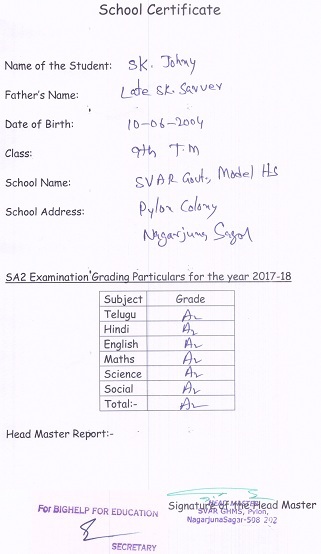 School Certificate
Name of the Student: SK. Johny
Father's Name: Late SK. Sarver
Date of Birth: 10-06-2004
Class: 9th T.M
School Name: SVAR Govt, Model HS
School Address: Pylon Colony
Nagarjuna Sagar
SA2 Examination Grading Particulars for the year 2017-18
Subject Grade
Telugu A2
Hindi A2
English A2
Maths A2
Science A2
Social A2
Total:- A2
Head Master Report:-
Signature of the Head Master
HEAD MASTER
SVAR GHMS, Pylon,
NagarjunaSagar-508 202
For BIGHELP FOR EDUCATION
SECRETARY